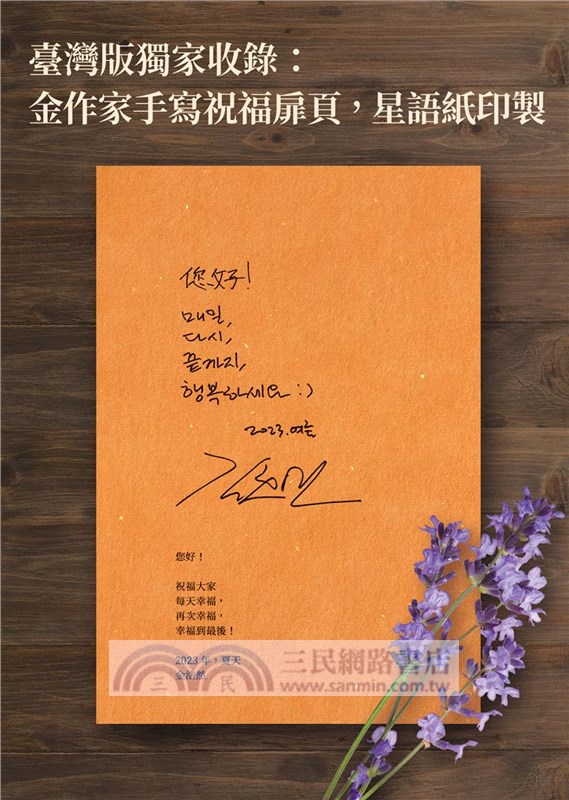 臺灣版獨家收錄：
金作家手寫祝福扉頁，星語紙印製
您好!
매일,
다시,
끝까지,
행복하세요 :)
2023. 여름
您好！
祝福大家
每天幸福，
再次幸福，
幸福到最後！
2023 年，夏天
金浩然
三民網路書店
三 民
www.sanmin.com.tw